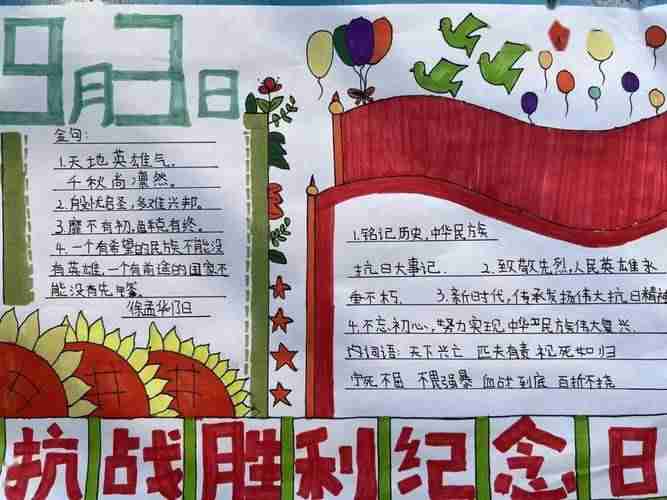 9月3日
金句:
1.天地英雄气,
千秋尚凛然。
2.殷忧启圣,多难兴邦。
3.靡不有初,鲜克有终。
4.一个有希望的民族不能没
有英雄,一个有前途的国家不
能没有先
1.铭记历史,中华民族
抗日大事记. 2.致敬先烈,人民英雄永
垂不朽. 3.新时代,传承发扬伟大抗日精神
4.不忘初心,努力实现中华民族伟大复兴.
内词语:天下兴亡 匹夫有责 视死如归
宁死不屈 不畏强暴 血战到底 百折不挠
抗战胜利纪念日